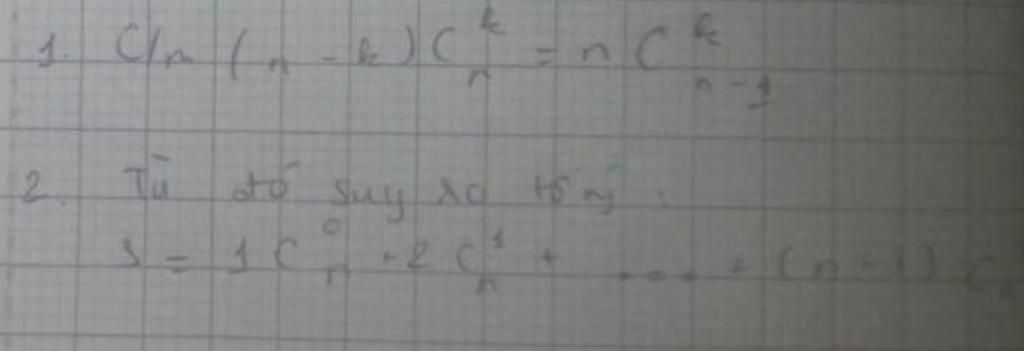 1. C/m (n - k) C_n^k = n C_{n-1}^k
2. Từ đó suy ra tổng :
S = 1 C_n^0 + 2 C_n^1 + ... + (n + 1) C_n